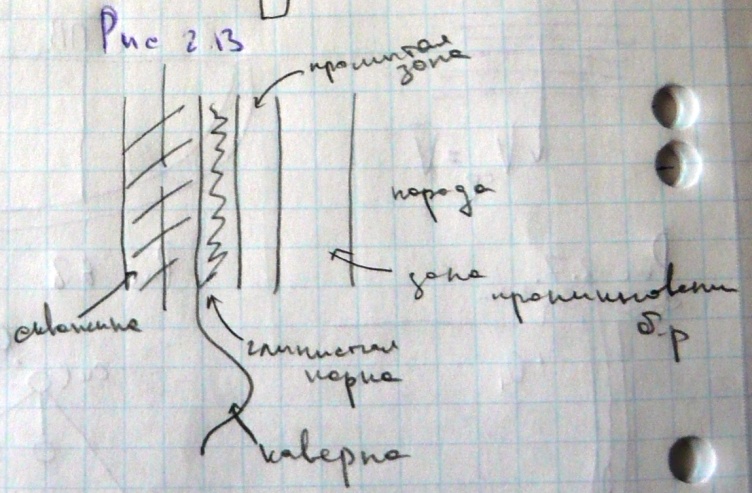 Рис 2.13
промытая
зона
порода
зона проникновени
б.р
скважина
глинистая
корка
каверна